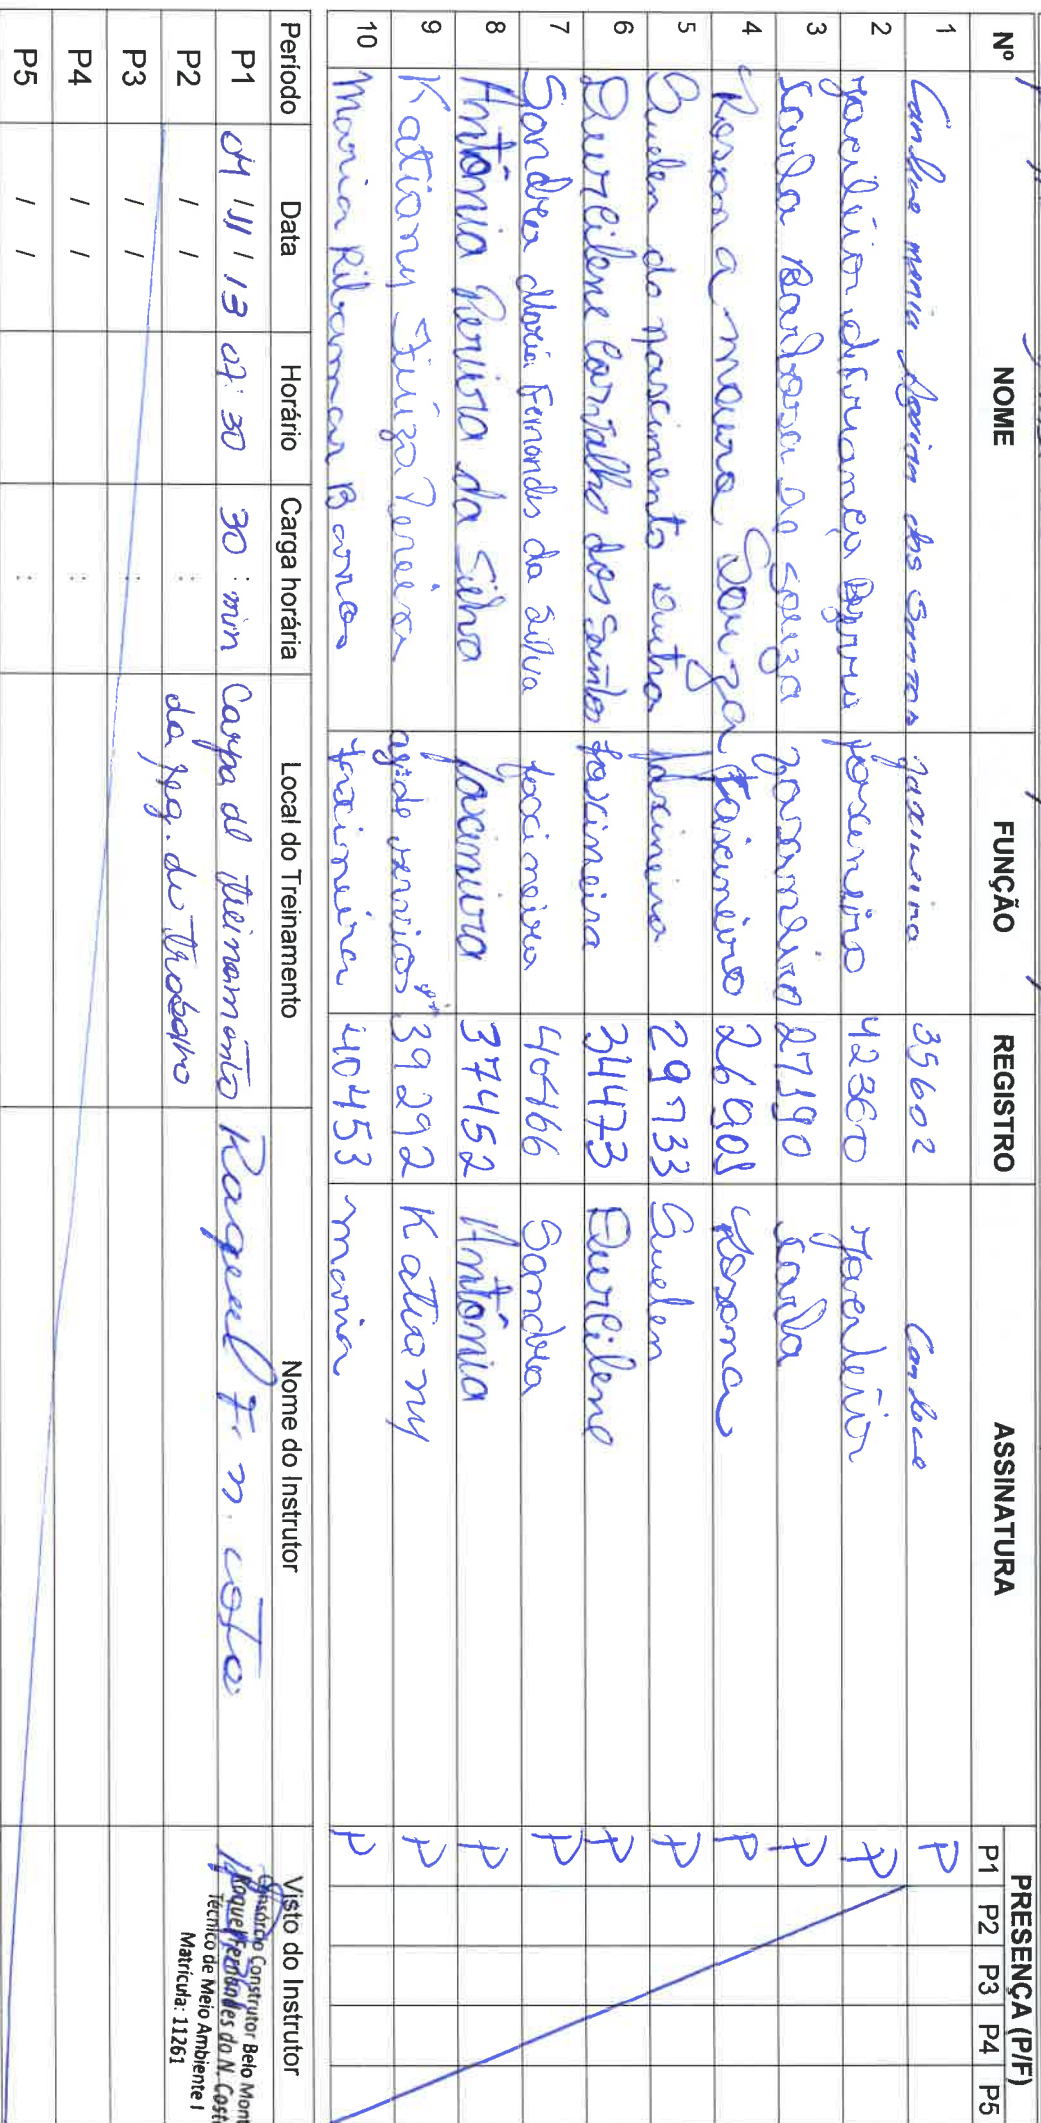 Nº NOME FUNÇÃO REGISTRO ASSINATURA PRESENÇA (P/F)
P1 P2 P3 P4 P5
1 maria dos Santos faxineira 35602 P
2 faxineiro 42360 P
3 Carla Barbosa de Souza 27190 Carla P
4 Rosana moura Souza faxineiro 26901 Rosana P
5 Suelen do nascimento dutra faxineira 29733 Suelen P
6 Durcilene Carvalho dos Santos faxineira 34473 Durcilene P
7 Sandra Maria Fernandes da Silva faxineira 40466 Sandra P
8 Antônia Pereira da Silva faxineira 37452 Antônia P
9 Katiany Pereira serviços 39292 Katiany P
10 Maria Ribamar Barros faxineira 40453 maria P
Período Data Horário Carga horária Local do Treinamento Nome do Instrutor Visto do Instrutor
P1 04 / 11 / 13 07:30 30 : min Carpa de treinamento Raquel F. n. costa
P2 / / : da seg. do Trabalho
P3 / / :
P4 / / :
P5 / / :
Consórcio Construtor Belo Mont
Raquel Fernandes do N. Cost
Técnico de Meio Ambiente I
Matrícula: 11261